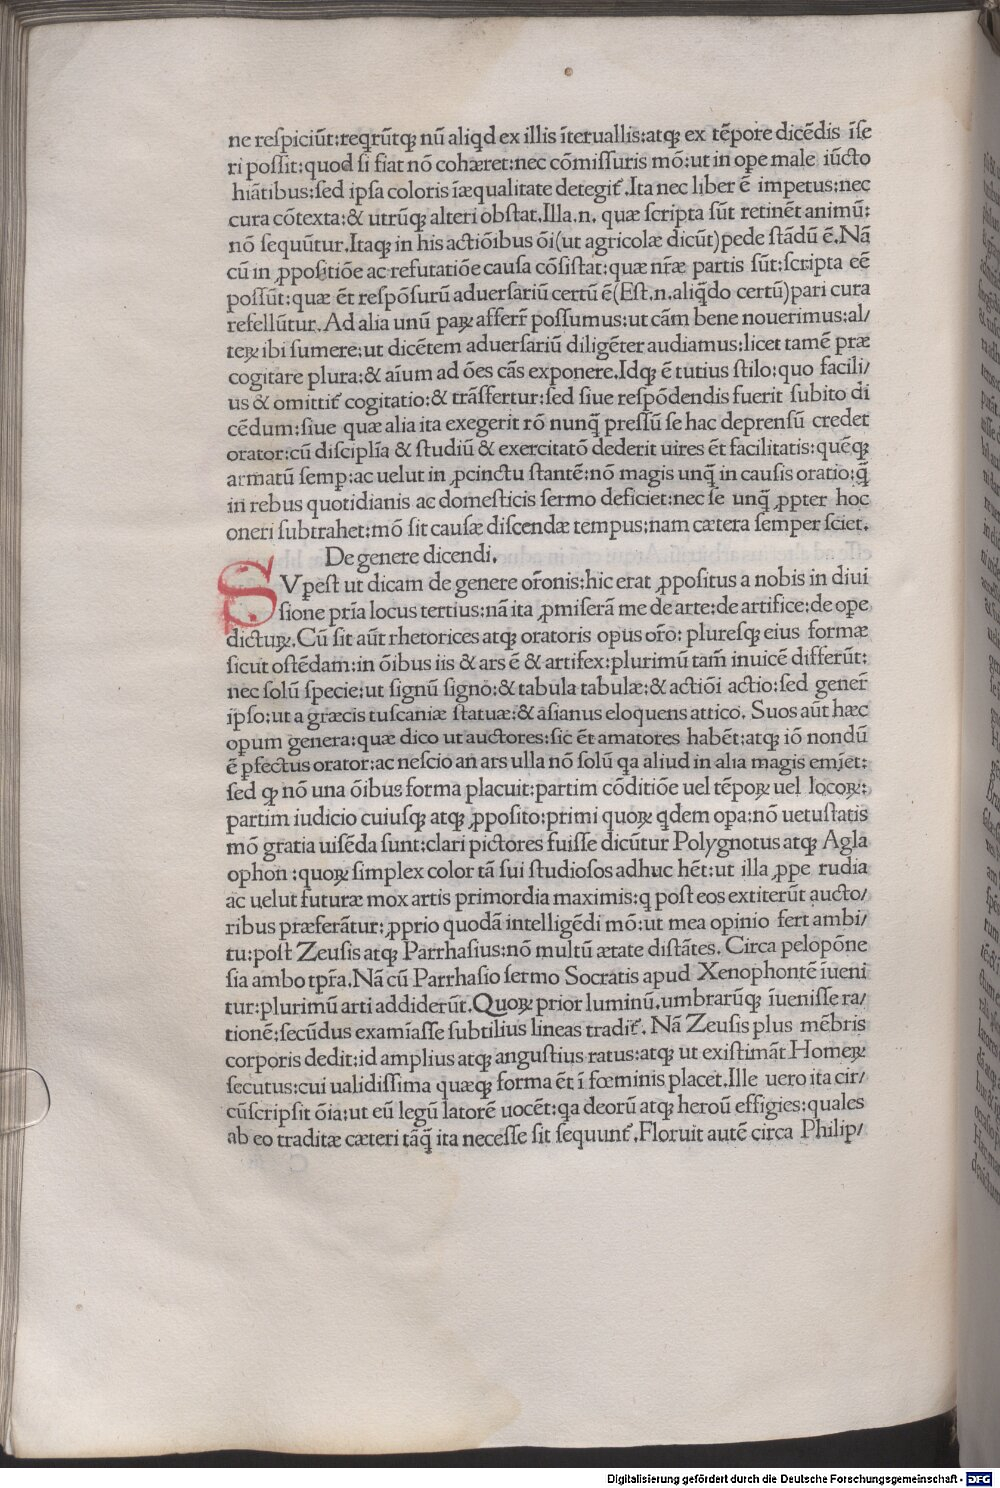 ne reſpiciūt:reqrūtqꝫ nū aliqd ex illis īteruallis:atqꝫ ex tēpore dicēdis īſe
ri poſſit:quod ſi fiat nō cohæret:nec cōmiſſuris mō:ut in oꝑe male iūcto
hiātibus:ſed ipſa coloris īæqualitate detegit᷑.Ita nec liber ē impetus:nec
cura cōtexta:& utrūqꝫ alteri obſtat.Illa.n. quæ ſcripta ſūt retinēt animū:
nō ſequūtur.Itaqꝫ in his actiōibus ōi(ut agricolæ dicūt)pede ſtādū ē.Nā
cū in ꝓpoſitiōe ac refutatiōe cauſa cōſiſtat:quæ nr̄æ partis ſūt:ſcripta eē
poſſūt:quæ ēt reſpōſurū aduerſariū certū ē(Eſt.n.aliq̄do certū)pari cura
refellūtur.Ad alia unū paꝝ afferr̄ poſſumus:ut cām bene nouerimus:al/
teꝝ ibi ſumere:ut dicētem aduerſariū diligēter audiamus:licet tamē præ
cogitare plura:& aīum ad ōes cās exponere.Idqꝫ ē tutius ſtilo:quo facili/
us & omittit᷑ cogitatio:& trāſfertur:ſed ſiue reſpōdendis fuerit ſubito di
cēdum:ſiue quæ alia ita exegerit rō nunq̄ preſſū ſe hac deprenſū credet
orator:cū diſciplīa & ſtudiū & exercitatō dederit uires ēt facilitatis:quēqꝫ
armatū ſemꝑ:ac uelut in ꝓcinctu ſtantē:nō magis unq̄ in cauſis oratio:q̄
in rebus quotidianis ac domeſticis ſermo deficiet:nec ſe unq̄ ꝓpter hoc
oneri ſubtrahet:mō ſit cauſæ diſcendæ tempus:nam cætera ſemper ſciet.
De genere dicendi.
SVꝑeſt ut dicam de genere or̄onis:hic erat ꝓpoſitus a nobis in diui
ſione prīa locus tertius:nā ita ꝓmiſerā me de arte:de artifice:de oꝑe
dictuꝝ.Cū ſit aūt rhetorices atqꝫ oratoris opus or̄o: plureſqꝫ eius formæ
ſicut oſtēdam:in ōibus iis & ars ē & artifex:plurimū tam̄ inuicē differūt:
nec ſolū ſpecie:ut ſignū ſigno:& tabula tabulæ:& actiōi actio:ſed gener̄
ipſo:ut a græcis tuſcaniæ ſtatuæ:& aſianus eloquens attico. Suos aūt hæc
oꝑum genera:quæ dico ut auctores:ſic ēt amatores habēt:atqꝫ iō nondū
ē ꝑfectus orator:ac neſcio an ars ulla nō ſolū qa aliud in alia magis emīet:
ſed ꝙ nō una ōibus forma placuit:partim cōditiōe uel tēpoꝝ uel locoꝝ:
partim iudicio cuiuſqꝫ atqꝫ ꝓpoſito:primi quoꝝ qdem oꝑa:nō uetuſtatis
mō gratia uiſēda ſunt:clari pictores fuiſſe dicūtur Polygnotus atqꝫ Agla
ophon :quoꝝ ſimplex color tā ſui ſtudioſos adhuc hēt:ut illa ꝓpe rudia
ac uelut futuræ mox artis primordia maximis:q poſt eos extiterūt aucto/
ribus præferātur:ꝓprio quodā intelligēdi mō:ut mea opinio fert ambi/
tu:poſt Zeuſis atqꝫ Parrhaſius:nō multū ætate diſtātes. Circa pelopōne
ſia ambo tpr̄a.Nā cū Parrhaſio ſermo Socratis apud Xenophontē īueni
tur:plurimū arti addiderūt.Quoꝝ prior luminū.umbrarūqꝫ īueniſſe ra/
tionē:ſecūdus examīaſſe ſubtilius lineas tradit᷑. Nā Zeuſis plus mēbris
corporis dedit:id amplius atqꝫ anguſtius ratus:atqꝫ ut exiſtimāt Homeꝝ
ſecutus:cui ualidiſſima quæqꝫ forma ēt ī fœminis placet.Ille uero ita cir/
cūſcripſit ōia:ut eū legū latorē uocēt:qa deorū atqꝫ heroū effigies:quales
ab eo traditæ cæteri tāq̄ ita neceſſe ſit ſequunt᷑.Floruit autē circa Philip/
Digitalisierung gefördert durch die Deutsche Forschungsgemeinschaft - DFG